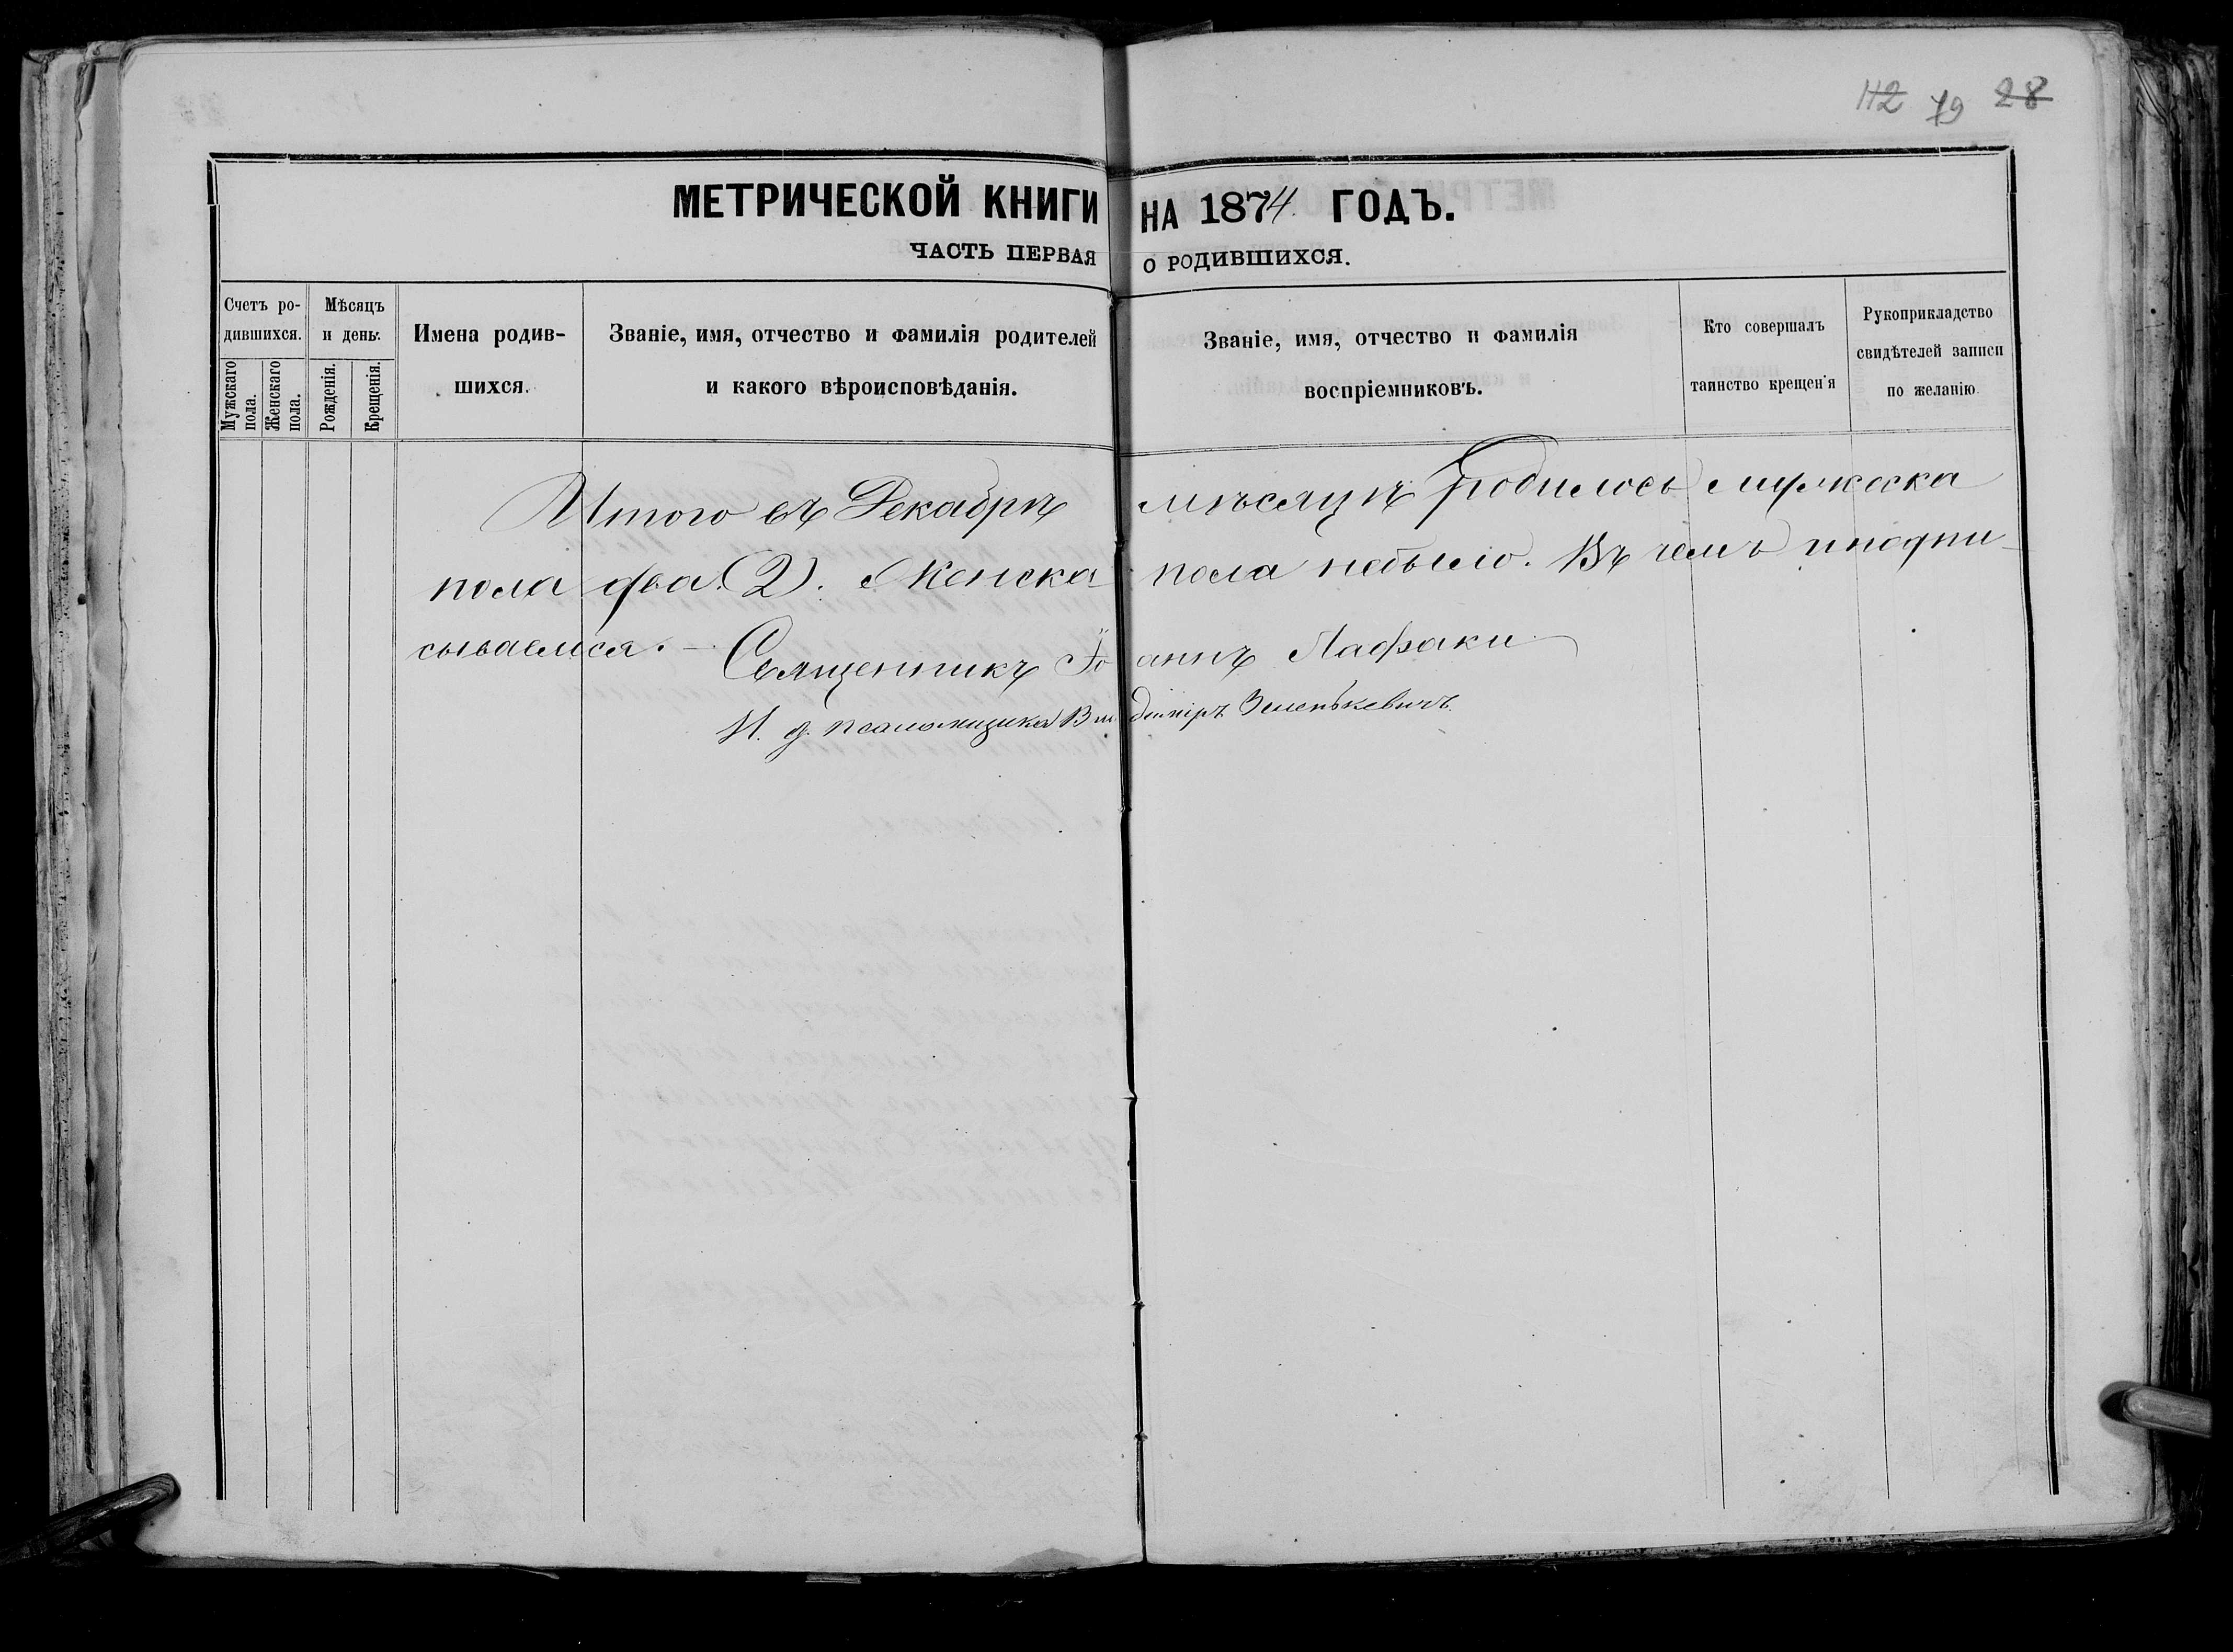 112 79 28
МЕТРИЧЕСКОЙ КНИГИ НА 1874 ГОДЪ.
ЧАСТЬ ПЕРВАЯ О РОДИВШИХСЯ.
Счетъ ро-
дившихся.
Мужскаго
пола.
Женскаго
пола.
Мѣсяцъ
и день.
Рожденія.
Крещенія.
Имена родив-
шихся.
Званіе, имя, отчество и фамилія родителей
и какого вѣроисповѣданія.
Званіе, имя, отчество и фамилія
воспріемниковъ.
Кто совершалъ
таинство крещенія
Рукоприкладство
свидѣтелей записи
по желанію.
Итого въ Декабрѣ мѣсяцѣ родилось мужеска
пола два (2). Женска пола небыло. Въ чемъ и подпи-
сываемся. — Священникъ Іоаннъ
И. д. псаломщика Владиміръ Зеленькевичъ